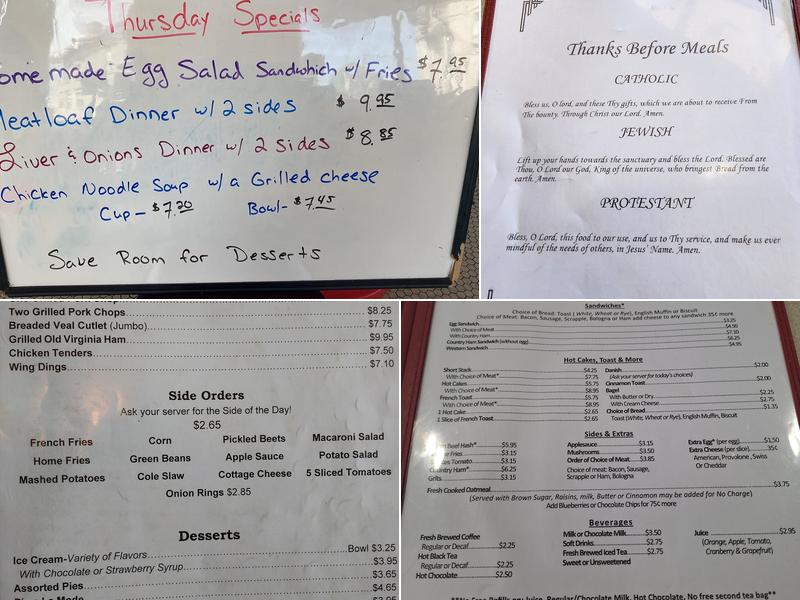 Thursday Specials
ome made Egg Salad Sandwhich w/ Fries $7.95
Meatloaf Dinner w/ 2 sides $9.95
Liver & Onions Dinner w/ 2 sides $8.85
Chicken Noodle Soup w/a Grilled cheese
Cup - $7.20 Bowl- $7.45
Save Room for Desserts
Thanks Before Meals
CATHOLIC
Bless us, O lord, and these Thy gifts, which we are about to receive From
The bounty. Through Christ our Lord. Amen.
JEWISH
Lift up your hands towards the sanctuary and bless the Lord. Blessed are
Thou, O Lord our God, King of the universe, who bringest Bread from the
earth. Amen.
PROTESTANT
Bless, O Lord, this food to our use, and us to Thy service, and make us ever
mindful of the needs of others, in Jesus' Name. Amen.
Two Grilled Pork Chops $8.25
Breaded Veal Cutlet (Jumbo) $7.75
Grilled Old Virginia Ham $9.95
Chicken Tenders $7.50
Wing Dings $7.10
Side Orders
Ask your server for the Side of the Day!
$2.65
French Fries Corn Pickled Beets Macaroni Salad
Home Fries Green Beans Apple Sauce Potato Salad
Mashed Potatoes Cole Slaw Cottage Cheese 5 Sliced Tomatoes
Onion Rings $2.85
Desserts
Ice Cream-Variety of Flavors Bowl $3.25
With Chocolate or Strawberry Syrup $3.95
$3.65
Assorted Pies $4.65
Sandwiches*
Choice of Bread: Toast ( White, Wheat or Rye), English Muffin or Biscuit
Choice of Meat: Bacon, Sausage, Scrapple, Bologna or Ham add cheese to any sandwich 35¢ more
Egg Sandwich $3.25
With Choice of Meat $4.50
With Country Ham $7.10
Country Ham Sandwich (without egg) $6.25
Western Sandwich $4.95
Hot Cakes, Toast & More
Short Stack $4.25
With Choice of Meat* $7.75
Hot Cakes $5.75
With Choice of Meat* $8.95
French Toast $5.75
With Choice of Meat* $8.95
1 Hot Cake $2.65
1 Slice of French Toast $2.65
Danish $2.00
(Ask your server for today's choices)
Cinnamon Toast $2.00
Bagel
With Butter or Dry $2.25
With Cream Cheese $2.75
Choice of Bread $1.35
Toast (White, Wheat or Rye), English Muffin, Biscuit
Sides & Extras
Beef Hash* $5.95
Fries $3.15
Tomato $3.15
Country Ham* $6.25
Grits $3.15
Applesauce $3.15
Mushrooms $3.50
Order of Choice of Meat $3.85
Choice of meat: Bacon, Sausage,
Scrapple or Ham, Bologna
Extra Egg* (per egg) $1.50
Extra Cheese (per slice) 35¢
American, Provolone , Swiss
Or Cheddar
Fresh Cooked Oatmeal $3.75
(Served with Brown Sugar, Raisins, milk, Butter or Cinnamon may be added for No Charge)
Add Blueberries or Chocolate Chips for 75¢ more
Beverages
Fresh Brewed Coffee
Regular or Decaf $2.25
Hot Black Tea
Regular or Decaf $2.25
Hot Chocolate $2.50
Milk or Chocolate Milk $3.50
Soft Drinks $2.75
Fresh Brewed Iced Tea $2.75
Sweet or Unsweetened
Juice $2.95
(Orange, Apple, Tomato,
Cranberry & Grapefruit)
**No Free Refills on: Juice, Regular/Chocolate Milk, Hot Chocolate, No free second tea bag**